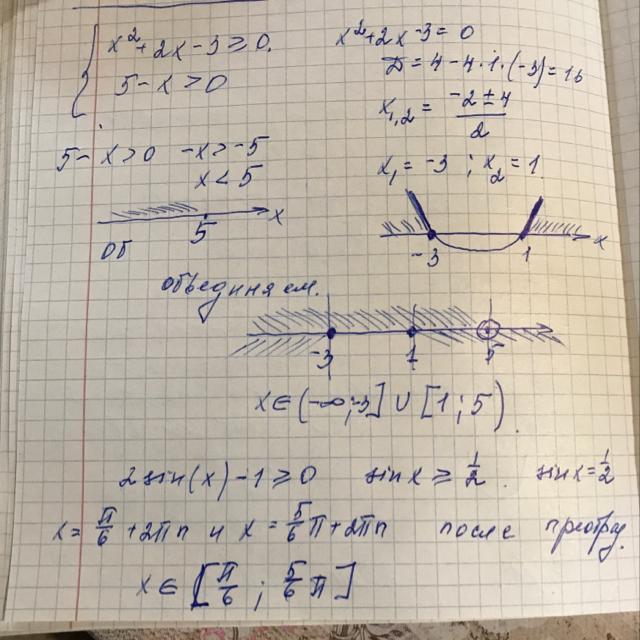 x²+2x-3≥0.
5-x>0
x²+2x-3=0
D=4-4·1·(-3)=16
x₁,₂ = (-2±4)/2
x₁=-3 ; x₂=1
5-x>0 -x>-5
x<5
5 x
об
-3 1 x
объединяем.
-3 1 5
x∈(-∞;-3]∪[1;5).
2sin(x)-1≥0 sinx≥1/2. sinx=1/2
x=π/6+2πn и x=5/6π+2πn после преобраз.
x∈[π/6 ; 5/6π]